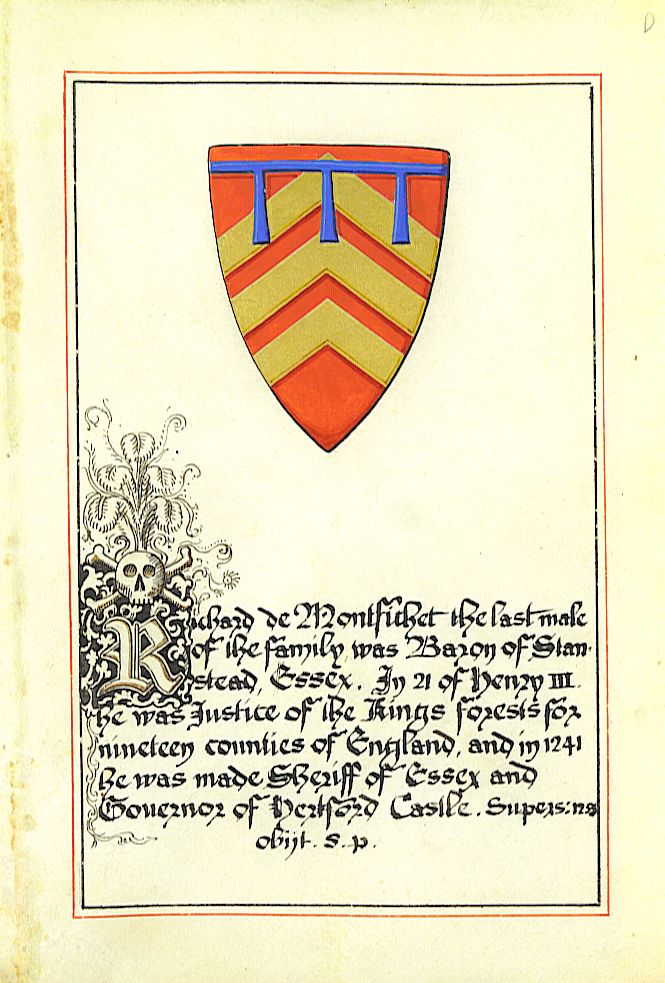 D
Richard de Montfichet the last male
of the family was Baron of Stan-
stead, Essex. In 21 of Henry III.
he was Justice of the Kings forests for
nineteen counties of England, and in 1241
he was made Sheriff of Essex and
Governor of Hertford Castle. Supers:
obijt. s. p.